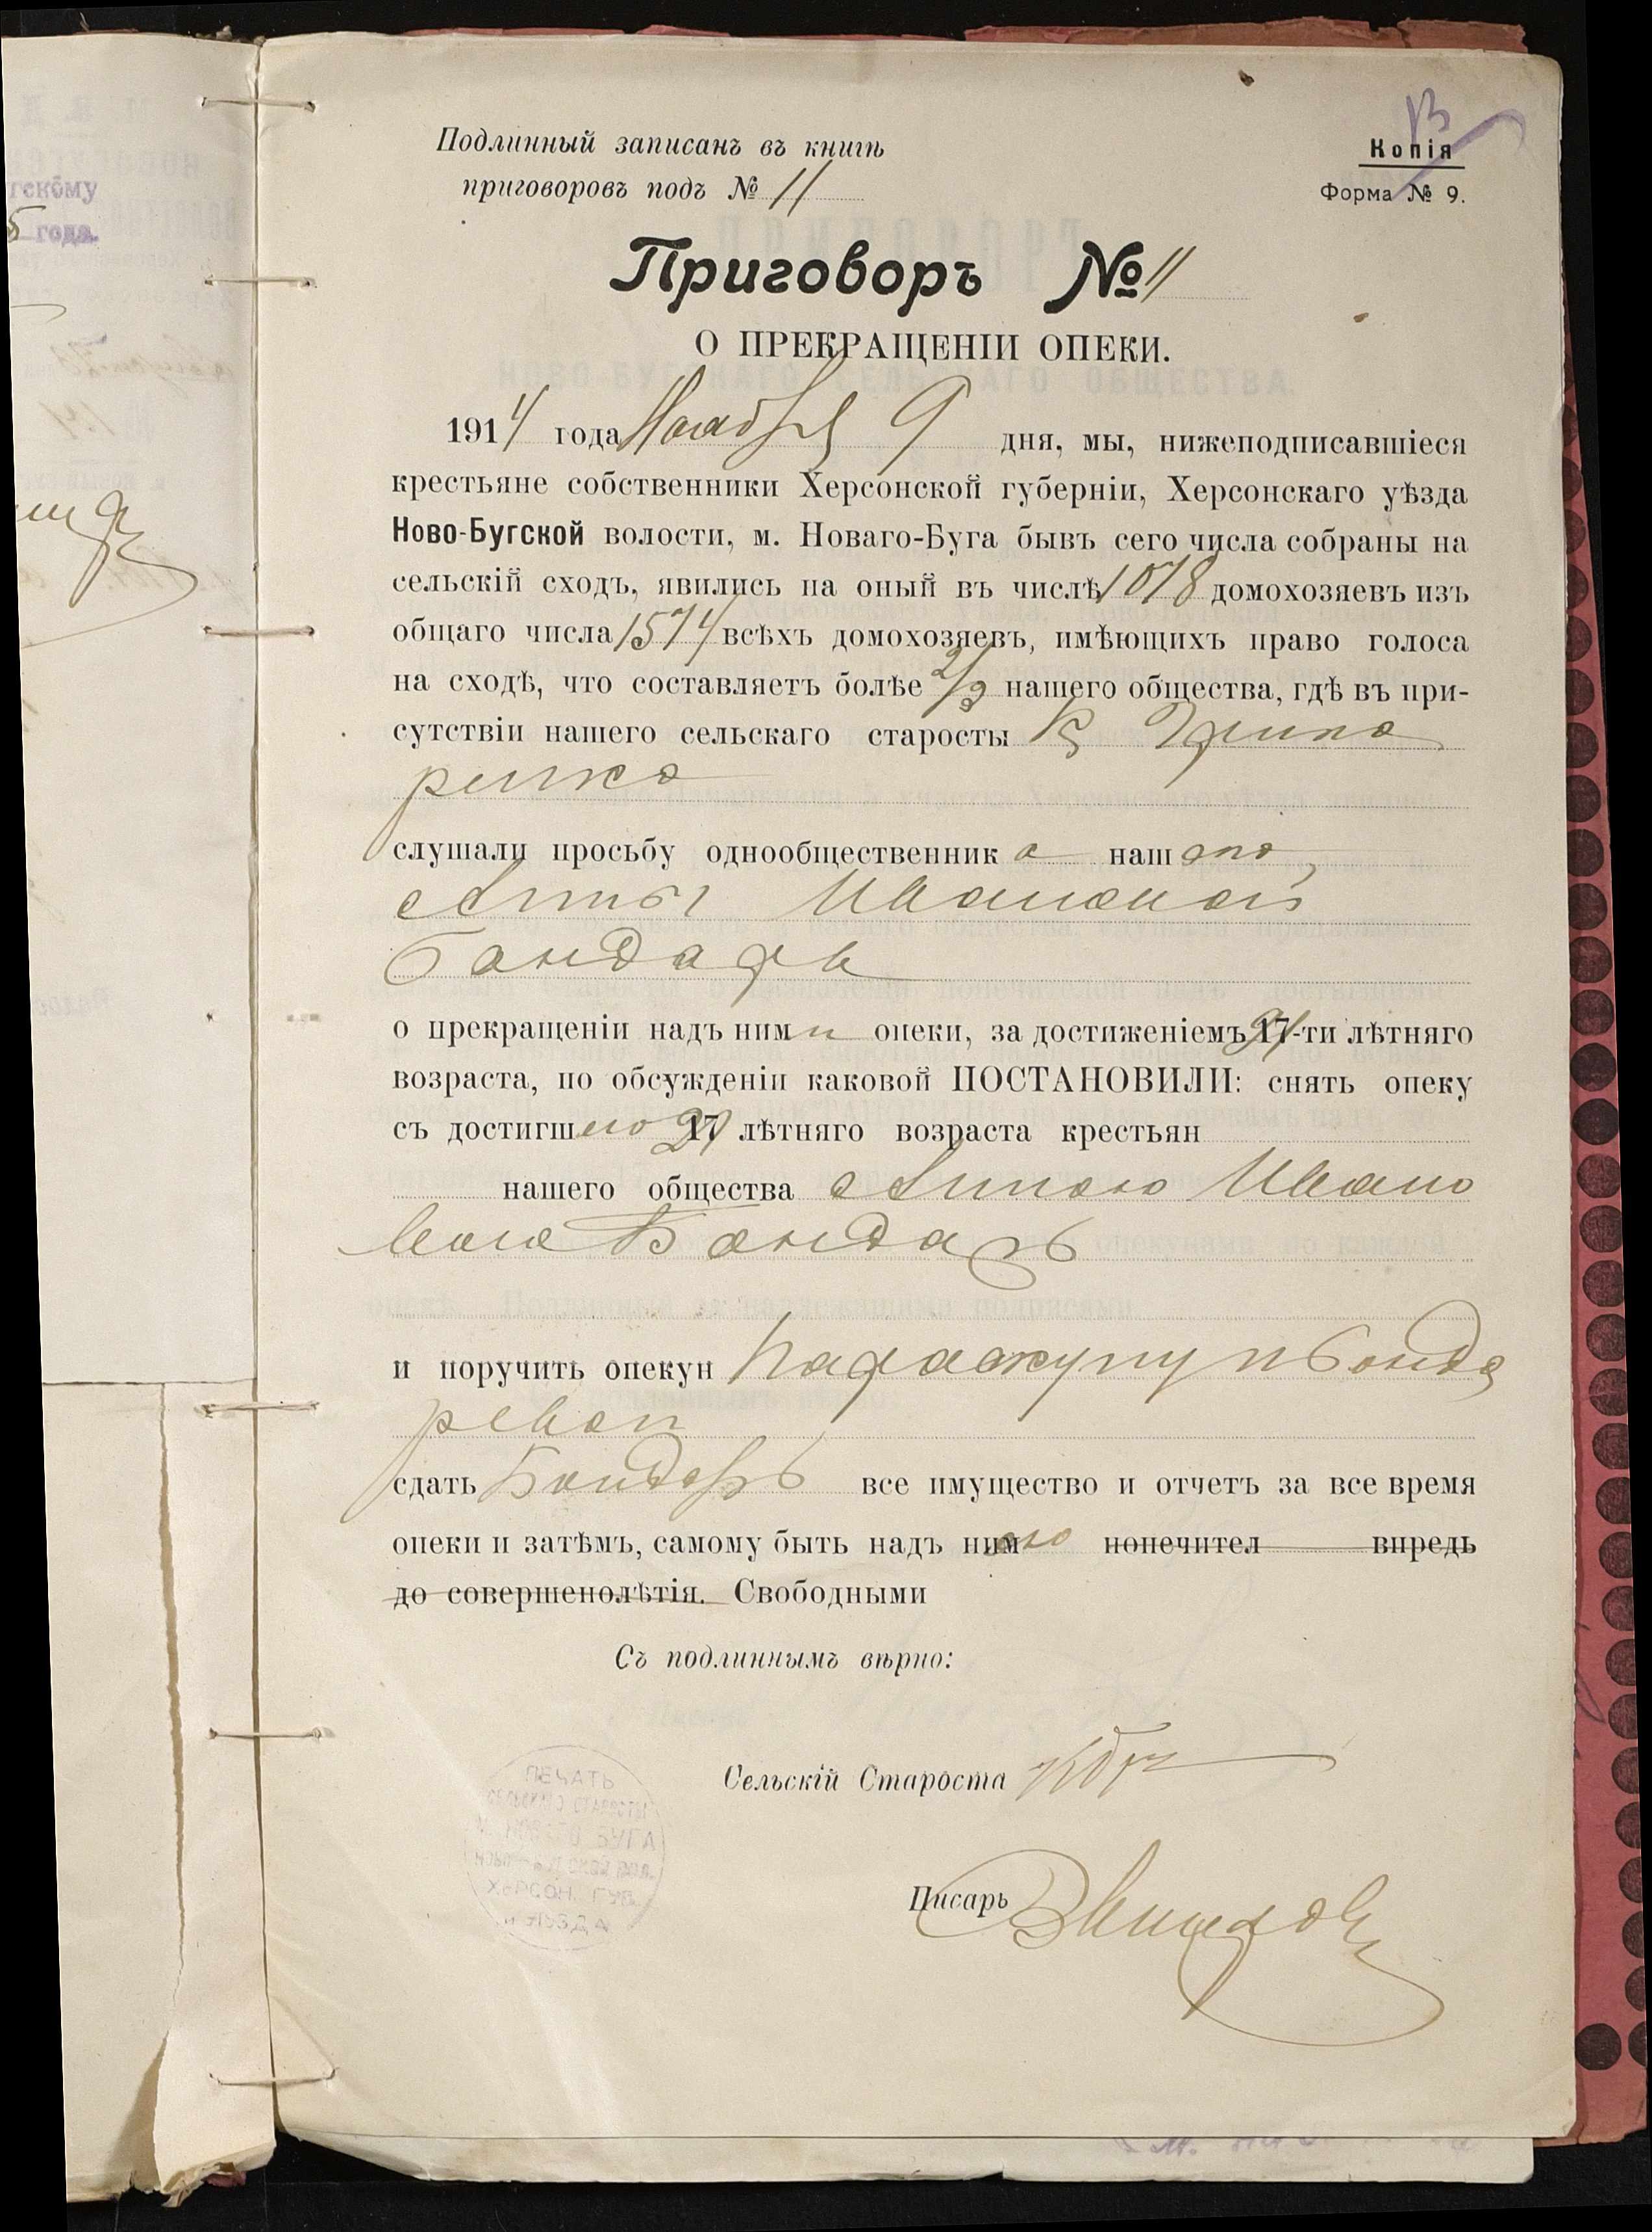 Подлинный записанъ въ книгѣ
приговоровъ подъ № 11
Копія
Форма № 9.
Приговоръ № 11
О ПРЕКРАЩЕНІИ ОПЕКИ.
1914 года Ноября 9 дня, мы, нижеподписавшіеся
крестьяне собственники Херсонской губерніи, Херсонскаго уѣзда
Ново-Бугской волости, м. Новаго-Буга бывъ сего числа собраны на
сельскій сходъ, явились на оный въ числѣ 1078 домохозяевъ изъ
общаго числа 1574 всѣхъ домохозяевъ, имѣющихъ право голоса
на сходѣ, что составляетъ болѣе 2/3 нашего общества, гдѣ въ при-
сутствіи нашего сельскаго старосты
слушали просьбу однообщественника нашего,
Ивановой
Бондарь
о прекращеніи надъ ними опеки, за достиженіемъ 21-ти лѣтняго
возраста, по обсужденіи каковой ПОСТАНОВИЛИ: снять опеку
съ достигшею 21 лѣтняго возраста крестьян
нашего общества Ивано
вою Бондарь
и поручить опекун Бонда
ревой
сдать Бондарь все имущество и отчетъ за все время
опеки и затѣмъ, самому быть надъ нимъ попечител впредь
до совершенолѣтія. Свободными
Съ подлиннымъ вѣрно:
Сельскій Староста
Писарь
ПЕЧАТЬ
СЕЛЬСКАГО СТАРОСТЫ
М. НОВАГО БУГА
ХЕРСОН. ГУБ.
И УѢЗДА
гскому
5 года.